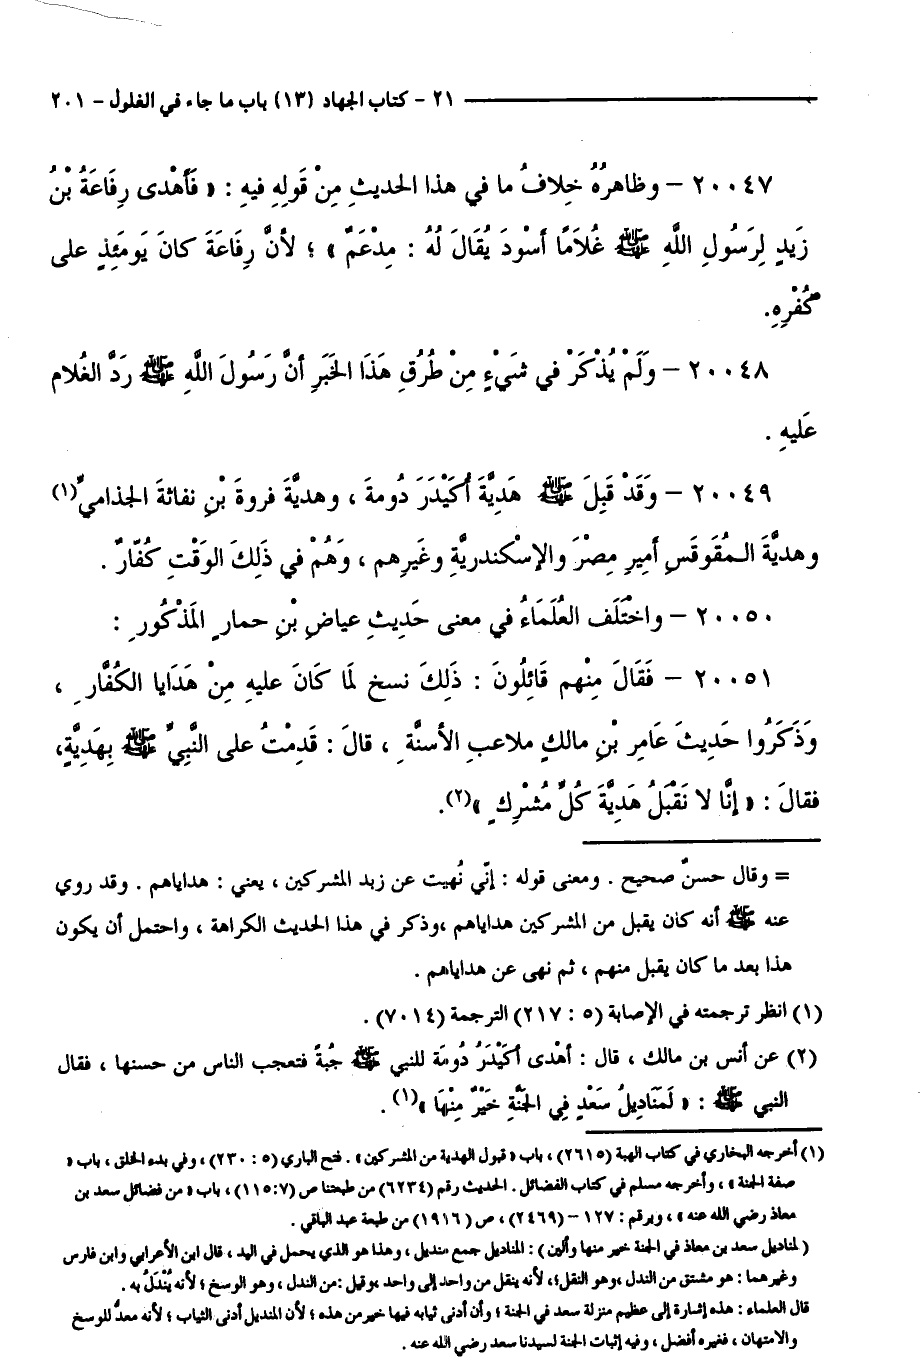 ٢١ - كتاب الجهاد (١٣) باب ما جاء في الغلول - ٢٠١
٢٠٠٤٧ - وظاهرُهُ خلافُ ما في هذا الحديثِ مِنْ قَولِهِ فيهِ : « فَأَهْدى رِفَاعَةُ بْنُ
زَيدٍ لِرَسُولِ اللَّهِ ﷺ غُلَامًا أسْودَ يُقَالَ لَهُ : مِدْعَمٌ » ؛ لأنَّ رِفَاعَةَ كانَ يَومَئِذٍ على
كُفْرِهِ.
٢٠٠٤٨ - وَلَمْ يُذْكَرْ في شَيْءٍ مِنْ طُرُقِ هَذَا الخَبَرِ أنَّ رَسُولَ اللَّهِ ﷺ رَدَّ الغُلام
عَليهِ .
٢٠٠٤٩ - وَقَدْ قَبِلَ ﷺ هَدِيَّةَ أُكَيْدَرَ دُومةَ ، وهديَّةَ فروةَ بْنِ نفاثةَ الجذاميِّ(١)
وهديَّةَ المُقَوقَسِ أميرِ مِصْرَ والإسْكندريَّةِ وغَيرِهم ، وَهُمْ في ذَلِكَ الوَقْتِ كُفّارٌ .
٢٠٠٥٠ - واخْتَلَف العُلَمَاءُ في معنى حَدِيثِ عياضِ بْنِ حمارٍ المَذْكُورِ :
٢٠٠٥١ - فَقَالَ مِنْهم قَائِلُونَ : ذَلِكَ نسخ لَما كَانَ عليهِ مِنْ هَدَايا الكُفَّارِ ،
وَذَكَرُوا حَدِيثَ عَامِرِ بْنِ مالكٍ ملاعبِ الأسنَّةِ ، قالَ : قَدِمْتُ على النَّبِيِّ ﷺ بِهَدِيَّةٍ،
فقالَ : « إنَّا لا نَقْبَلُ هَدِيَّةَ كُلِّ مُشْرِكٍ »(٢).
= وقال حسنٌ صحيح . ومعنى قوله : إنّي نُهيت عن زبد المشركين ، يعني : هداياهم . وقد روي
عنه ﷺ أنه كان يقبل من المشركين هداياهم ،وذكر في هذا الحديث الكراهة ، واحتمل أن يكون
هذا بعد ما كان يقبل منهم ، ثم نهى عن هداياهم .
(١) انظر ترجمته في الإصابة (٥ : ٢١٧) الترجمة (٧٠١٤) .
(٢) عن أنس بن مالك ، قال : أهْدى أكَيْدَرُ دُومَة للنبي ﷺ جُبةً فتعجب الناس من حسنها ، فقال
النبي ﷺ : « لَمَنَاديلُ سَعْدٍ فِي الجَنَّةِ خَيْرٌ مِنْهَا »(١) .
(١) أخرجه البخاري في كتاب الهبة (٢٦١٥) ، باب « قبول الهدية من المشركين » . فتح الباري (٥ : ٢٣٠) ، وفي بدء الخلق ، باب «
صفة الجنة » ، وأخرجه مسلم في كتاب الفضائل . الحديث رقم (٦٢٣٤) من طبعتنا ص (١١٥:٧) ، باب « من فضائل سعد بن
معاذ رضي الله عنه » ، وبرقم : ١٢٧ - (٢٤٦٩) ، ص ( ١٩١٦) من طبعة عبد الباقي .
( لمناديل سعد بن معاذ في الجنة خير منها وألين ) : المناديل جمع منديل ، وهذا هو الذي يحمل في اليد ، قال ابن الأعرابي وابن فارس
وغيرهما : هو مشتق من الندل ،وهو النقل؛، لأنه ينقل من واحد إلى واحد ،وقيل :من الندل ، وهو الوسخ ؛ لأنه يُنْدَلُ به .
قال العلماء : هذه إشارة إلى عظيم منزلة سعد في الجنة ؛ وأن أدنى ثيابه فيها خير من هذه ؛ لأن المنديل أدنى الثياب ؛ لأنه معدٌّ للوسخ
والامتهان ، فغيره أفضل ، وفيه إثبات الجنة لسيدنا سعد رضي الله عنه .